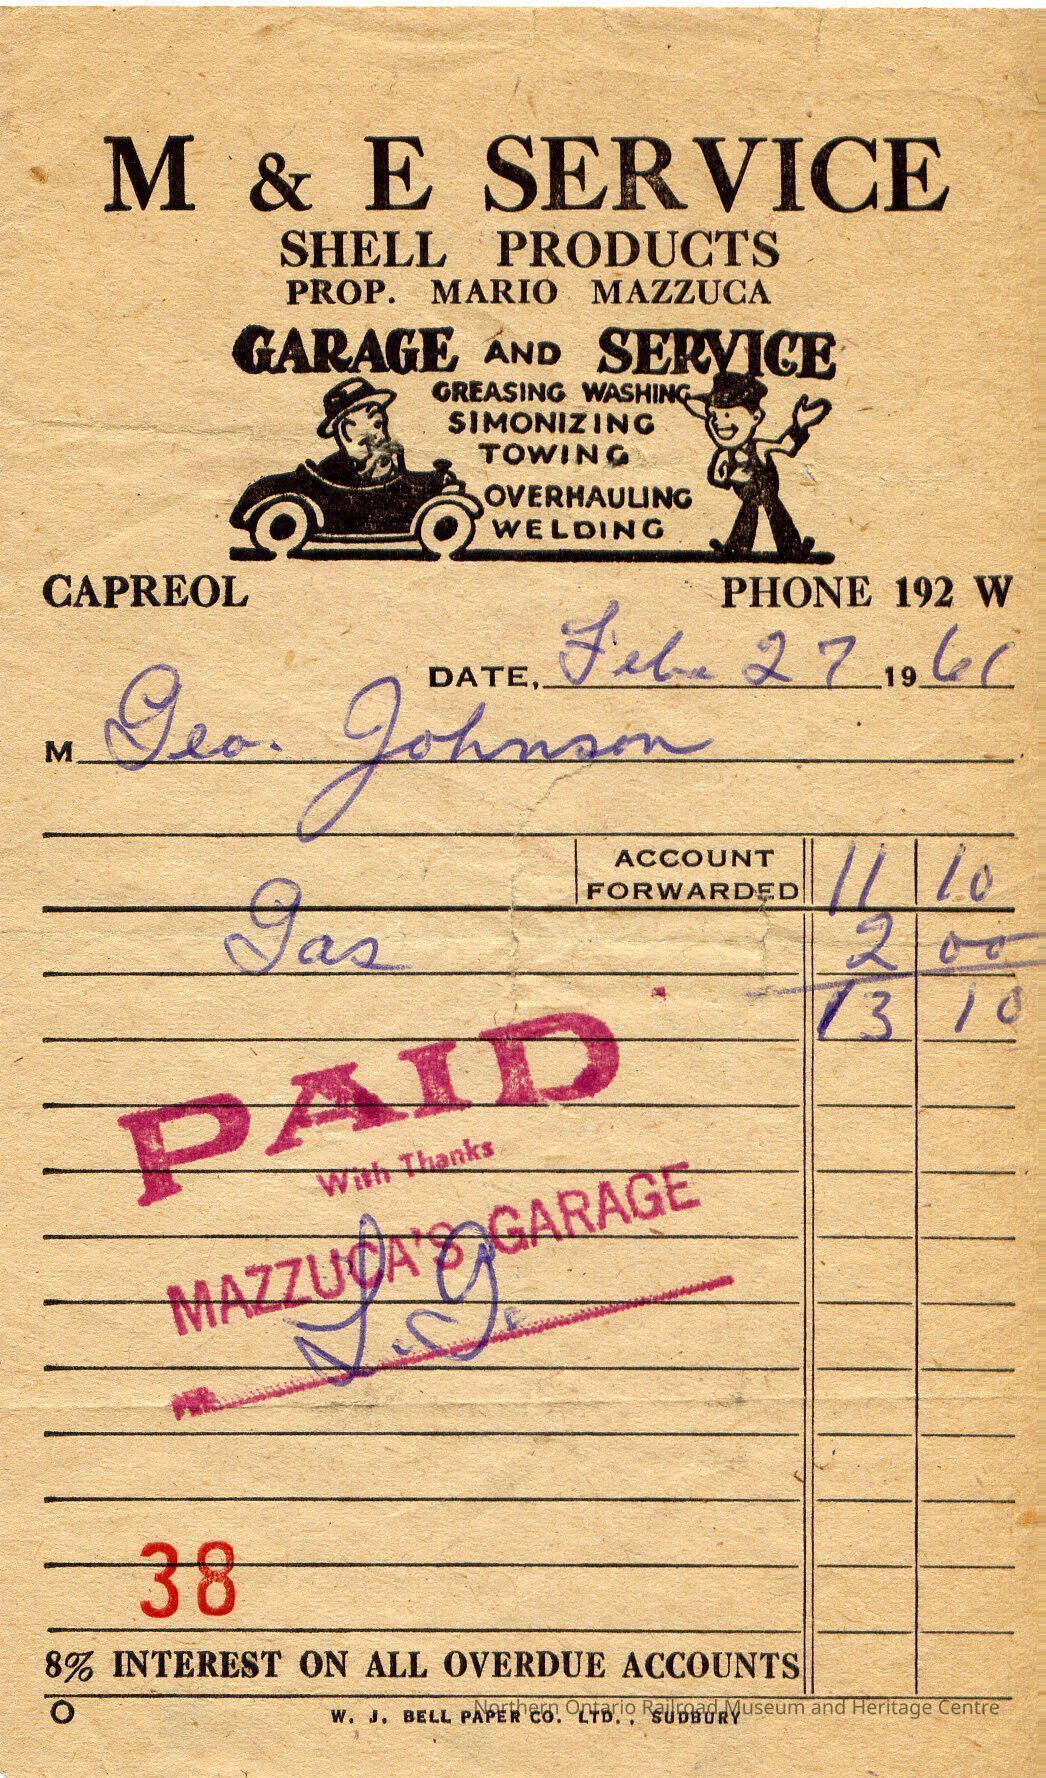 M & E SERVICE
SHELL PRODUCTS
PROP. MARIO MAZZUCA
GARAGE AND SERVICE
GREASING WASHING
SIMONIZING
TOWING
OVERHAULING
WELDING
CAPREOL PHONE 192 W
DATE, Feb. 27 1961
M Geo. Johnson
ACCOUNT FORWARDED 11 10
Gas 2 00
13 10
PAID
With Thanks
MAZZUCA'S GARAGE
PER
38
8% INTEREST ON ALL OVERDUE ACCOUNTS
O W. J. BELL PAPER CO. LTD., SUDBURY
Northern Ontario Railroad Museum and Heritage Centre